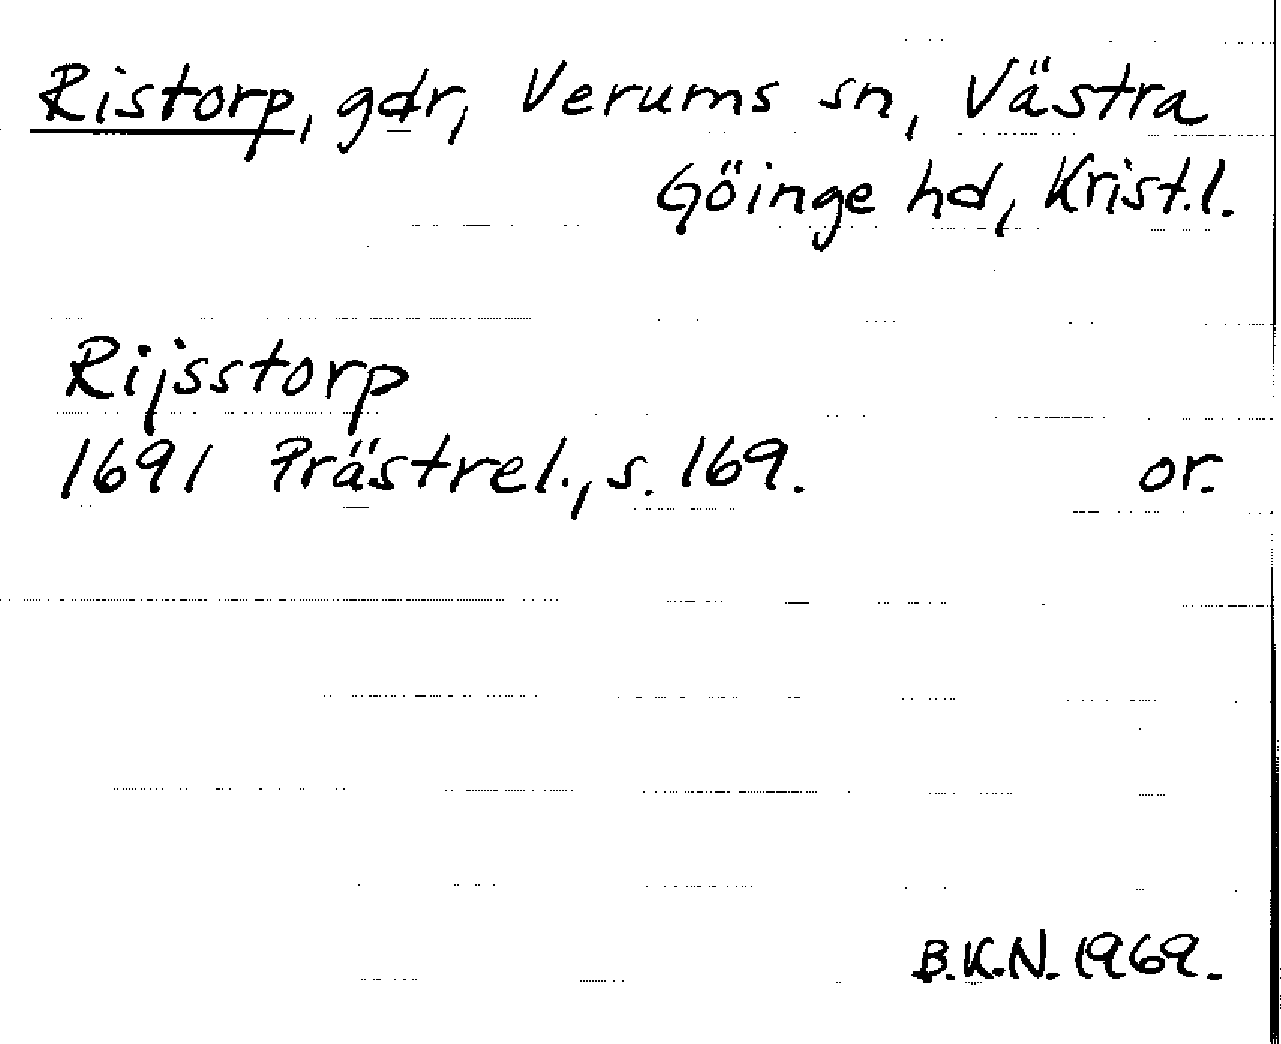 Ristorp, gdr, Verums sn, Västra
Göinge hd, Krist.l.
Rijsstorp
1691 Prästrel., s. 169. or.
B.K.N. 1969.